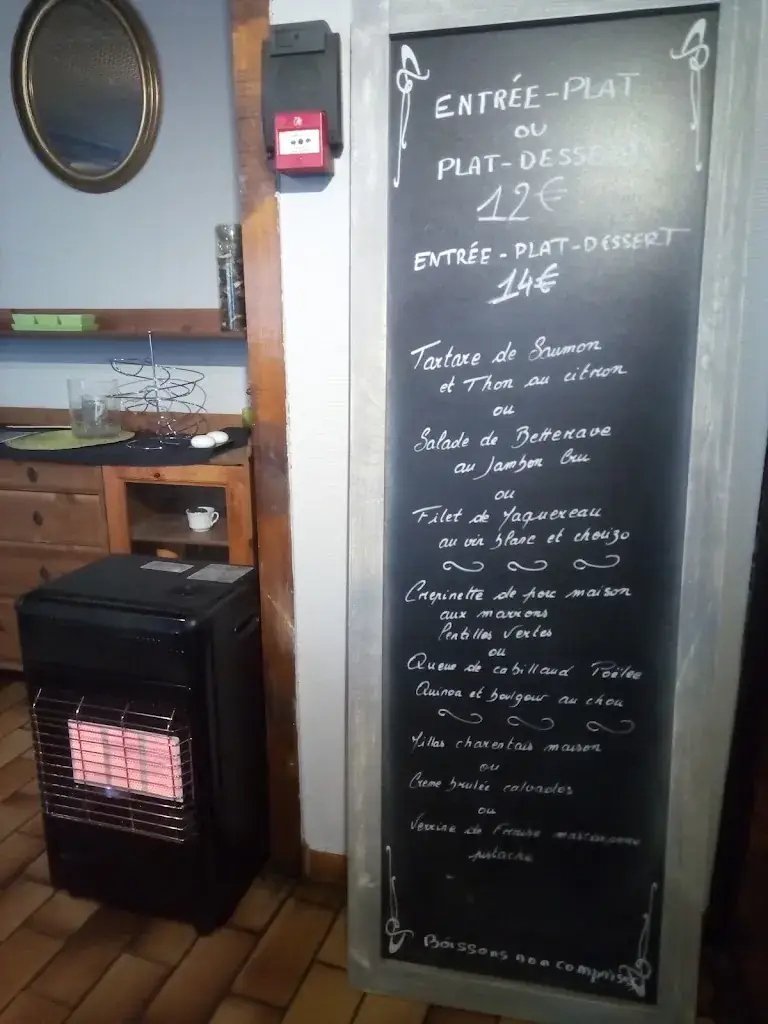 ENTRÉE-PLAT
OU
PLAT-DESSERT
12€
ENTRÉE-PLAT-DESSERT
14€
Tartare de Saumon
et Thon au citron
ou
Salade de Betterave
au Jambon Cru
ou
Filet de Maquereau
au vin blanc et chorizo
Crépinette de porc maison
aux marrons
Lentilles Vertes
ou
Queue de cabillaud Poëlée
Quinoa et boulgour au chou
Millas charentais maison
ou
Creme brulée calvados
ou
Verrine de Fraise mascarpone
pistache
Boissons non comprises